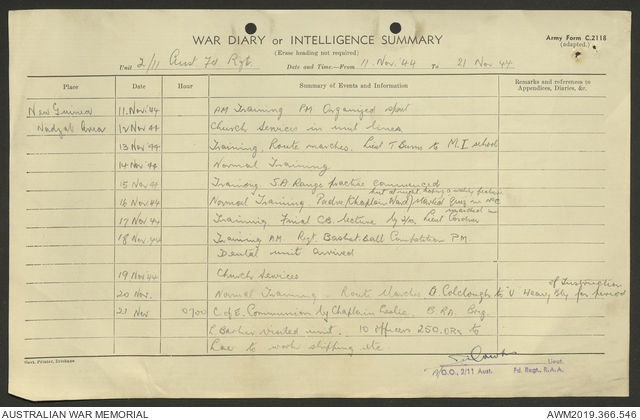 WAR DIARY or INTELLIGENCE SUMMARY
(Erase heading not required)
Army Form C.2118
(adapted.)
Unit 2/11 Aust Fd Regt. Date and Time—From 11 Nov. 44 To 21 Nov 44
Place Date Hour Summary of Events and Information Remarks and references to Appendices, Diaries, &c.
New Guinea 11 Nov 44 AM Training PM Organized sport
Nadzab Area 12 Nov 44 Church Services in unit lines
13 Nov 44 Training, Route marches, Lieut T Burns to M.I school
14 Nov 44 Normal Training
15 Nov 44 Training SA Range practice commenced
but at night
16 Nov 44 Normal Training. Padre (Chaplain Ward) in
17 Nov 44 Training Final C.B. lecture by Lieut
18 Nov 44 Training AM Rgt. Basket Ball Competition PM.
Dental unit arrived
19 Nov 44 Church Services
of Instruction
20 Nov. Normal Training. Route Marches D. Colclough to "V" Heavy Bty for period
21 Nov 0700 C of E. Communion by Chaplain Leslie. B.RA. Brig
visited unit. 10 officers 250 ORs to
Lae to work shipping etc.
Lieut.
O.O., 2/11 Aust. Fd. Regt., R.A.A.
Govt. Printer, Brisbane
AUSTRALIAN WAR MEMORIAL
AWM2019.366.546